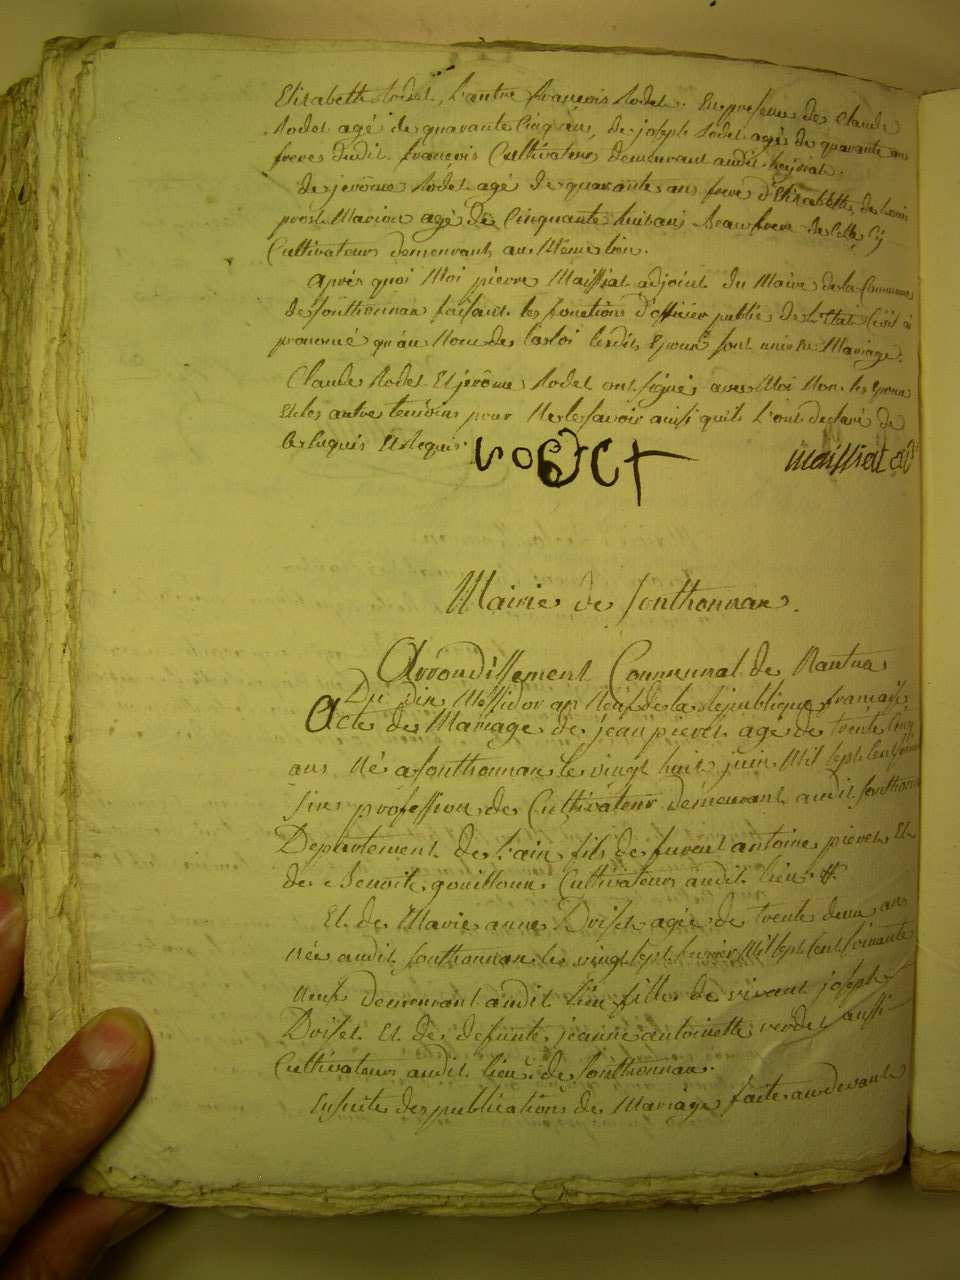 Elisabeth Rodet, L'autre françois Rodet. En presence de Claude
Rodet agé de quarante Cinq ans, de joseph Rodet agé de quarante ans
frere dudit françois Cultivateurs demeurant audit heyriat.
de jerôme Rodet agé de quarante ans frere d'Elisabeth, de Louis
prost Marion agé de Cinquante huit ans Beau frere de Celle Cy
Cultivateurs demeurant au Même lieu.
Après quoi Moi pierre Maissiat adjoint du Maire de la Commune
de Sonthonnax faisant les fonctions d'officier public de L'Etat Civil ai
prononcé qu'au Nom de la loi lesdits Epoux sont unis en Mariage.
Claude Rodet Et jerôme Rodet ont signé avec Moi Non les Epoux
Et les autre temoins pour Ne le savoir ainsi quils L'ont declaré de
Ce Enquis Et Requis.
Rodet maissiat adj
Mairie de Sonthonnax.
Arrondissement Communal de Nantua
Du dix Messidor an Neuf de la République française
Acte de Mariage de jean pievet agé de trente Cinq
ans Né a Sonthonnax le vingt huit juin Mil sept Cent soixante
Six profession de Cultivateur demeurant audit Sonthonnax
Departement de L'ain, fils de furent antoine pievet Et
de Benoite gouilloux Cultivateurs audit lieu
Et de Marie anne Driset agée de trente deux ans
Née audit Sonthonnax le vingt sept fevrier Mil sept Cent soixante
Neuf demeurant audit lieu fille de vivant joseph
Driset Et de defunte jeanne antoinette verdet aussi
Cultivateurs audit lieu de Sonthonnax.
Ensuite des publications de Mariage faite au devant